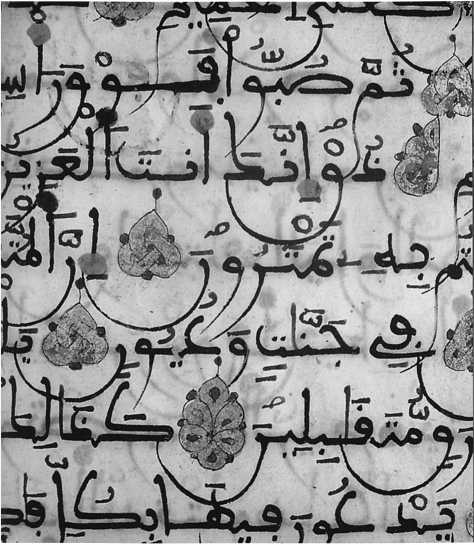 ثُمَّ صُبُّوا۟ فَوْقَ رَأْسِ
ذُقْ إِنَّكَ أَنتَ ٱلْعَزِيزُ
بِهِۦ تَمْتَرُونَ إِنَّ ٱلْمُتَّ
فِي جَنَّٰتٍ وَعِيُونٍ يَلْ
رَقٍ مُّتَقَٰبِلِينَ كَذَٰلِكَ
يَدْعُونَ فِيهَا بِكُلِّ فَٰ